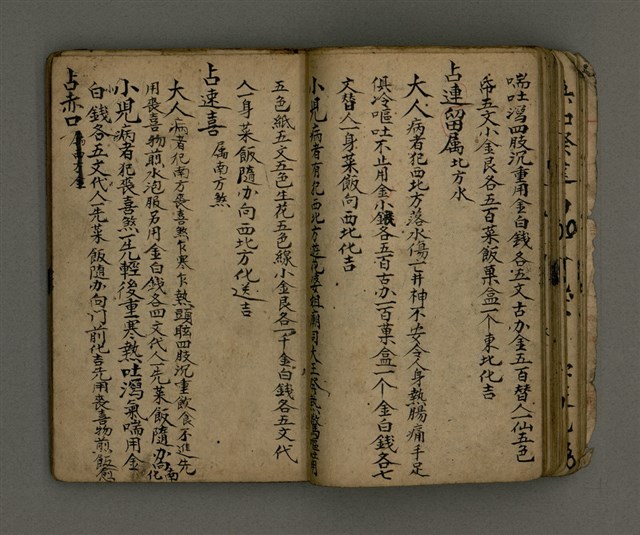 喘吐瀉四肢沉重用金白錢各五文古办金五百替人一仙五色
帋五文小金艮各五百菜飯菓盒一个東北化吉
占連留属北方水
大人病者犯西北方落水傷亡井神不安令人身熱腸痛手足
俱冷嘔吐不止用金小錢各五百古办一百菓盒一个金白錢各七
文替人一身菜飯向西北化吉
小児病者有犯西北方
五色紙五文五色生花五色線小金艮各一千金白錢各五文代
人一身菜飯隨办向西北方化送吉
占速喜属南方煞
大人病者犯南方喪喜煞乍寒乍熱頭眩四肢沉重飲食不進先
用喪喜物煎水泡服另用金白錢各四文代人一先菜飯隨办向南化
小児病者犯喪喜煞一先輕後重寒熱吐瀉氣喘用金
白錢各五文代人一先菜飯隨办向门前化吉先用喪喜物煎飯愈
占赤口属西方金